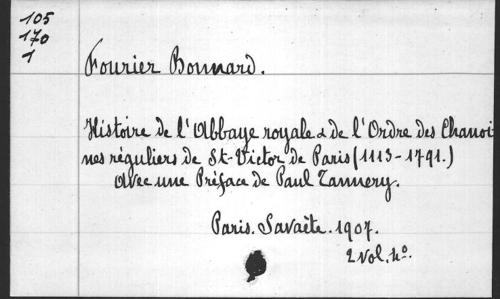 105
170
1
Fourier Bonnard.
Histoire de l'Abbaye royale & de l'Ordre des Chanoi
nes réguliers de St-Victor de Paris (1113-1791.)
Avec une Préface de Paul Tannery.
Paris. Savaète. 1907.
2 vol. 4º.